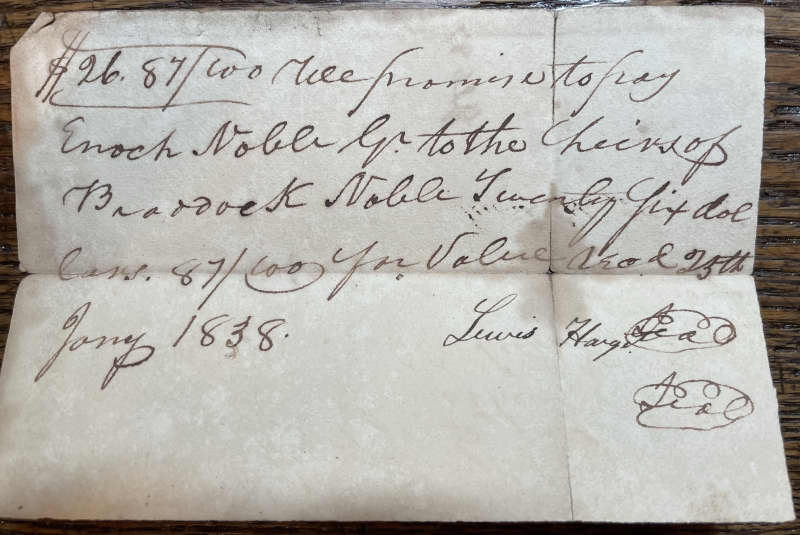 $26. 87/100 Wee promise to pay
Enoch Noble Gr. to the heirs of
Braddock Noble Twenty Six dol
lars. 87/100 for Value recd 25th
Jany 1838. Lewis Seal
Seal